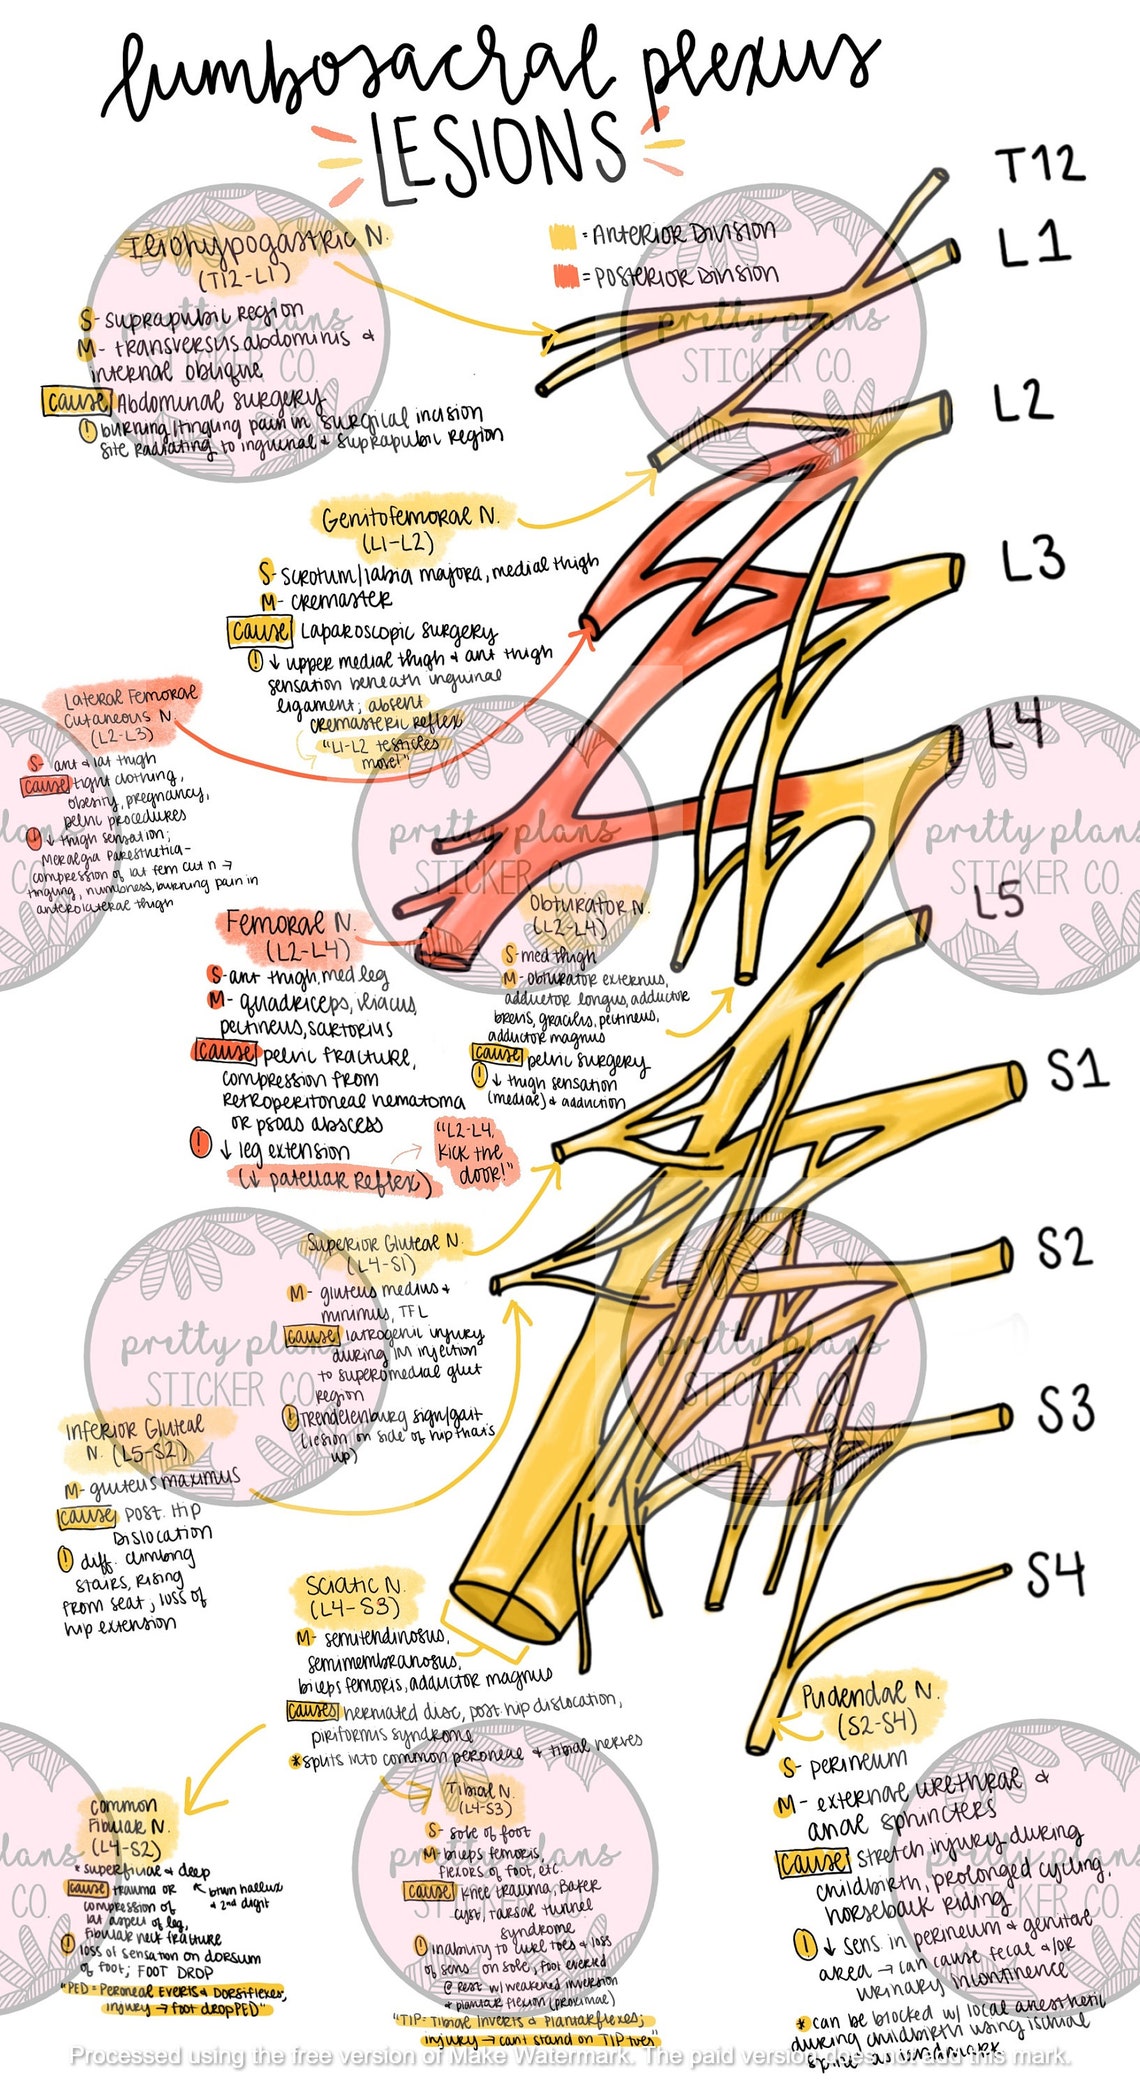 lumbosacral plexus
LESIONS
= Anterior Division
= Posterior Division
T12
L1
L2
L3
L4
L5
S1
S2
S3
S4
Iliohypogastric N.
(T12-L1)
S- suprapubic region
M- transversus abdominis &
internal oblique
cause Abdominal surgery
! burning/tingling pain in surgical incision
site radiating to inguinal & suprapubic region
Genitofemoral N.
(L1-L2)
S- scrotum/labia majora, medial thigh
M- cremaster
cause Laparoscopic surgery
! ↓ upper medial thigh & ant thigh
sensation beneath inguinal
ligament; absent
cremasteric reflex
"L1-L2 testicles
move!"
Lateral Femoral
Cutaneous N.
(L2-L3)
S- ant & lat thigh
cause tight clothing,
obesity, pregnancy,
pelvic procedures
! ↓ thigh sensation;
Meralgia Paresthetica-
compression of lat fem cut n →
tingling, numbness, burning pain in
anterolateral thigh
Femoral N.
(L2-L4)
S- ant thigh, med leg
M- quadriceps, iliacus,
pectineus, sartorius
cause pelvic fracture,
compression from
retroperitoneal hematoma
or psoas abscess
! ↓ leg extension
(↓ patellar reflex)
"L2-L4,
kick the
door!"
Obturator N.
(L2-L4)
S- med thigh
M- obturator externus,
adductor longus, adductor
brevis, gracilis, pectineus,
adductor magnus
cause pelvic surgery
! ↓ thigh sensation
(medial) & adduction
Superior Gluteal N.
(L4-S1)
M- gluteus medius &
minimus, TFL
cause iatrogenic injury
during IM injection
to superomedial glut
region
! Trendelenburg sign/gait
(lesion on side of hip that's
up)
Inferior Gluteal
N. (L5-S2)
M- gluteus maximus
cause Post. Hip
Dislocation
! diff. climbing
stairs, rising
from seat, loss of
hip extension
Sciatic N.
(L4-S3)
M- semitendinosus,
semimembranosus,
biceps femoris, adductor magnus
causes herniated disc, post. hip dislocation,
piriformis syndrome
* splits into common peroneal & tibial nerves
Common
Fibular N.
(L4-S2)
* superficial & deep
btwn hallux
& 2nd digit
cause trauma or
compression of
lat aspect of leg,
fibular neck fracture
! loss of sensation on dorsum
of foot, FOOT DROP
"PED = Peroneal Everts & Dorsiflexes,
injury → foot dropPED"
Tibial N.
(L4-S3)
S- sole of foot
M- biceps femoris,
flexors of foot, etc.
cause knee trauma, Baker
cyst, tarsal tunnel
syndrome
! inability to curl toes & loss
of sens on sole, foot everted
@ rest w/ weakened inversion
& plantar flexion (proximal)
"TIP- Tibial Inverts & Plantarflexes;
injury → cant stand on TIP toes"
Pudendal N.
(S2-S4)
S- perineum
M- external urethral &
anal sphincters
cause stretch injury during
childbirth, prolonged cycling,
horseback riding
! ↓ sens in perineum & genital
area → can cause fecal &/or
urinary incontinence
* can be blocked w/ local anesthetic
during childbirth using ischial
spine as landmark
pretty plans
STICKER CO.
pretty plans
STICKER CO.
pretty plans
STICKER CO.
pretty plans
STICKER CO.
pretty plans
STICKER CO.
pretty plans
STICKER CO.
pretty plans
STICKER CO.
pretty plans
STICKER CO.
Processed using the free version of Make Watermark. The paid version does not add this mark.